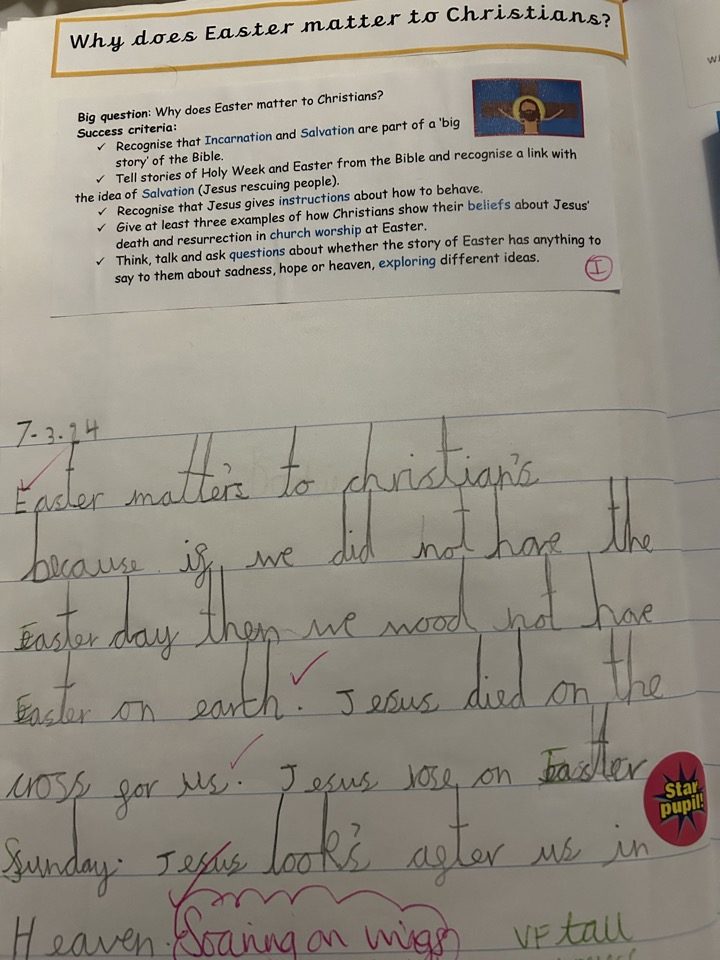 Why does Easter matter to Christians?
Big question: Why does Easter matter to Christians?
Success criteria:
✓ Recognise that Incarnation and Salvation are part of a 'big
story' of the Bible.
✓ Tell stories of Holy Week and Easter from the Bible and recognise a link with
the idea of Salvation (Jesus rescuing people).
✓ Recognise that Jesus gives instructions about how to behave.
✓ Give at least three examples of how Christians show their beliefs about Jesus'
death and resurrection in church worship at Easter.
✓ Think, talk and ask questions about whether the story of Easter has anything to
say to them about sadness, hope or heaven, exploring different ideas.
I
7-3-24
Easter matter's to christian's
because if we did not have the
Easter day then we wood not have
Easter on earth. Jesus died on the
cross for us. Jesus rose on Easter
Sunday. Jesus look's after us in
Heaven. Soaring on wings VF tall
Star
pupil!